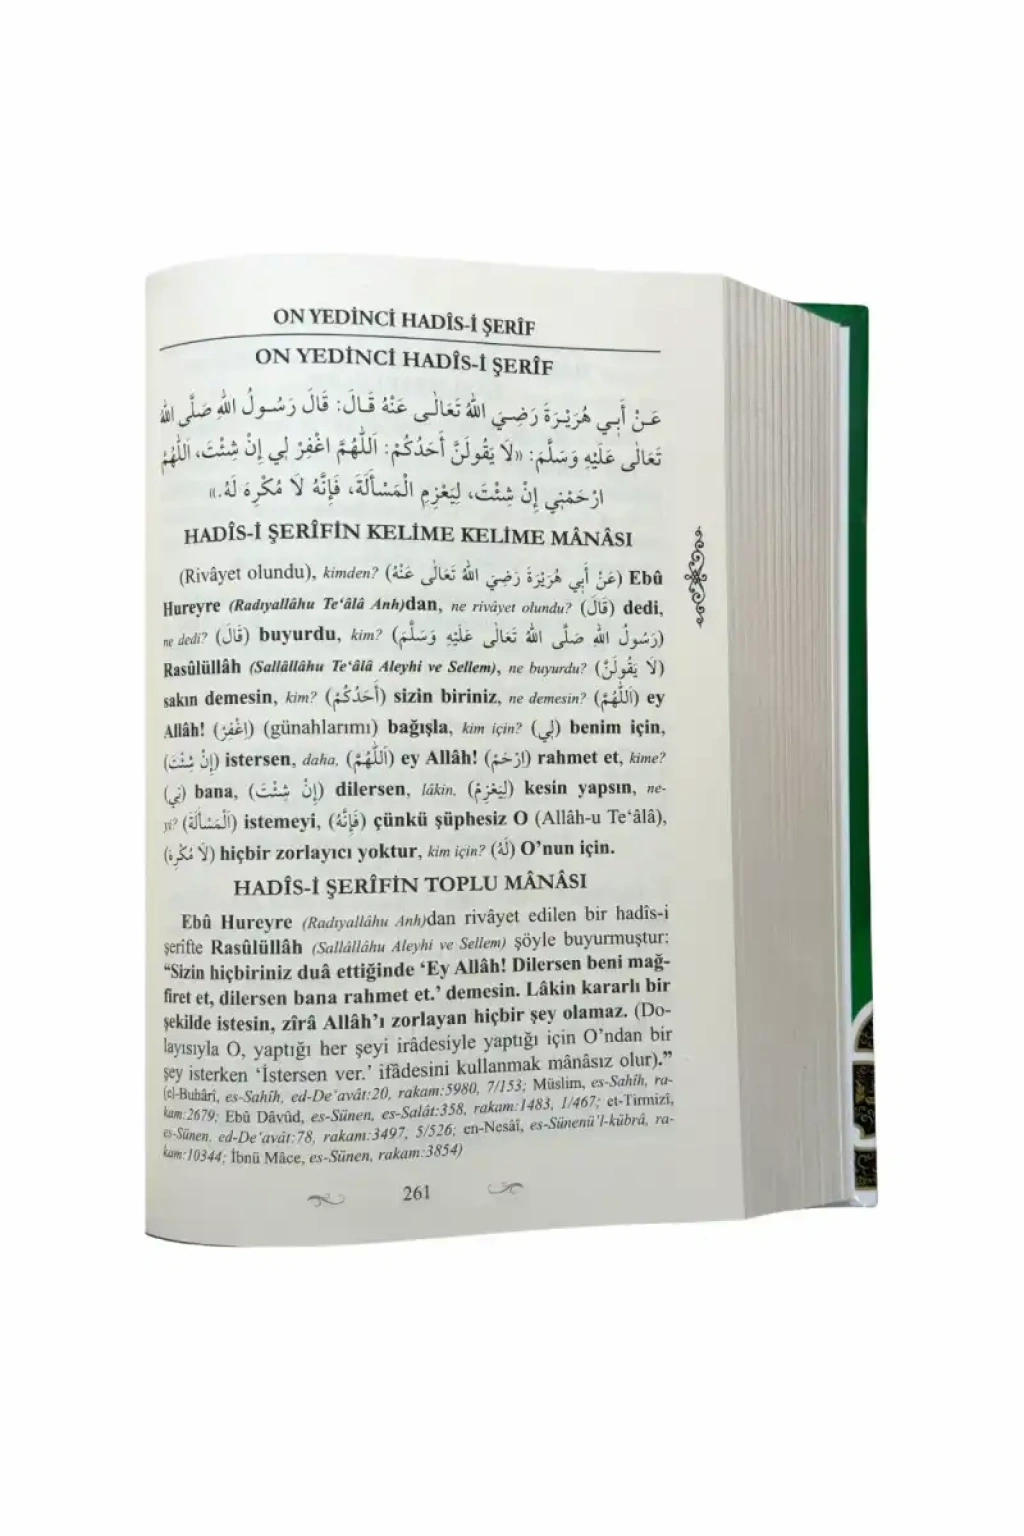 ON YEDİNCİ HADÎS-İ ŞERÎF
ON YEDİNCİ HADÎS-İ ŞERÎF
عَنْ أَبِي هُرَيْرَةَ رَضِيَ اللهُ تَعَالٰى عَنْهُ قَالَ: قَالَ رَسُولُ اللهِ صَلَّى اللهُ
تَعَالٰى عَلَيْهِ وَسَلَّمَ: «لَا يَقُولَنَّ أَحَدُكُمْ: اَللّٰهُمَّ اغْفِرْ لِي إِنْ شِئْتَ، اَللّٰهُمَّ
ارْحَمْنِي إِنْ شِئْتَ، لِيَعْزِمِ الْمَسْأَلَةَ، فَإِنَّهُ لَا مُكْرِهَ لَهُ.»
HADÎS-İ ŞERÎFİN KELİME KELİME MÂNÂSI
(Rivâyet olundu), kimden? (عَنْ أَبِي هُرَيْرَةَ رَضِيَ اللهُ تَعَالٰى عَنْهُ) Ebû
Hureyre (Radıyallâhu Te‘âlâ Anh)dan, ne rivâyet olundu? (قَالَ) dedi,
ne dedi? (قَالَ) buyurdu, kim? (رَسُولُ اللهِ صَلَّى اللهُ تَعَالٰى عَلَيْهِ وَسَلَّمَ)
Rasûlüllâh (Sallâllâhu Te‘âlâ Aleyhi ve Sellem), ne buyurdu? (لَا يَقُولَنَّ)
sakın demesin, kim? (أَحَدُكُمْ) sizin biriniz, ne demesin? (اَللّٰهُمَّ) ey
Allâh! (اِغْفِرْ) (günahlarımı) bağışla, kim için? (لِي) benim için,
(إِنْ شِئْتَ) istersen, daha, (اَللّٰهُمَّ) ey Allâh! (اِرْحَمْ) rahmet et, kime?
(نِي) bana, (إِنْ شِئْتَ) dilersen, lâkin, (لِيَعْزِمِ) kesin yapsın, ne-
yi? (اَلْمَسْأَلَةَ) istemeyi, (فَإِنَّهُ) çünkü şüphesiz O (Allâh-u Te‘âlâ),
(لَا مُكْرِهَ) hiçbir zorlayıcı yoktur, kim için? (لَهُ) O’nun için.
HADÎS-İ ŞERÎFİN TOPLU MÂNÂSI
Ebû Hureyre (Radıyallâhu Anh)dan rivâyet edilen bir hadîs-i
şerifte Rasûlüllâh (Sallâllâhu Aleyhi ve Sellem) şöyle buyurmuştur:
“Sizin hiçbiriniz duâ ettiğinde ‘Ey Allâh! Dilersen beni mağ-
firet et, dilersen bana rahmet et.’ demesin. Lâkin kararlı bir
şekilde istesin, zîrâ Allâh’ı zorlayan hiçbir şey olamaz. (Do-
layısıyla O, yaptığı her şeyi irâdesiyle yaptığı için O’ndan bir
şey isterken ‘İstersen ver.’ ifâdesini kullanmak mânâsız olur).”
(el-Buhârî, es-Sahîh, ed-De‘avât:20, rakam:5980, 7/153; Müslim, es-Sahîh, ra-
kam:2679; Ebû Dâvûd, es-Sünen, es-Salât:358, rakam:1483, 1/467; et-Tirmizî,
es-Sünen, ed-De‘avât:78, rakam:3497, 5/526; en-Nesâî, es-Sünenü’l-kübrâ, ra-
kam:10344; İbnü Mâce, es-Sünen, rakam:3854)
261